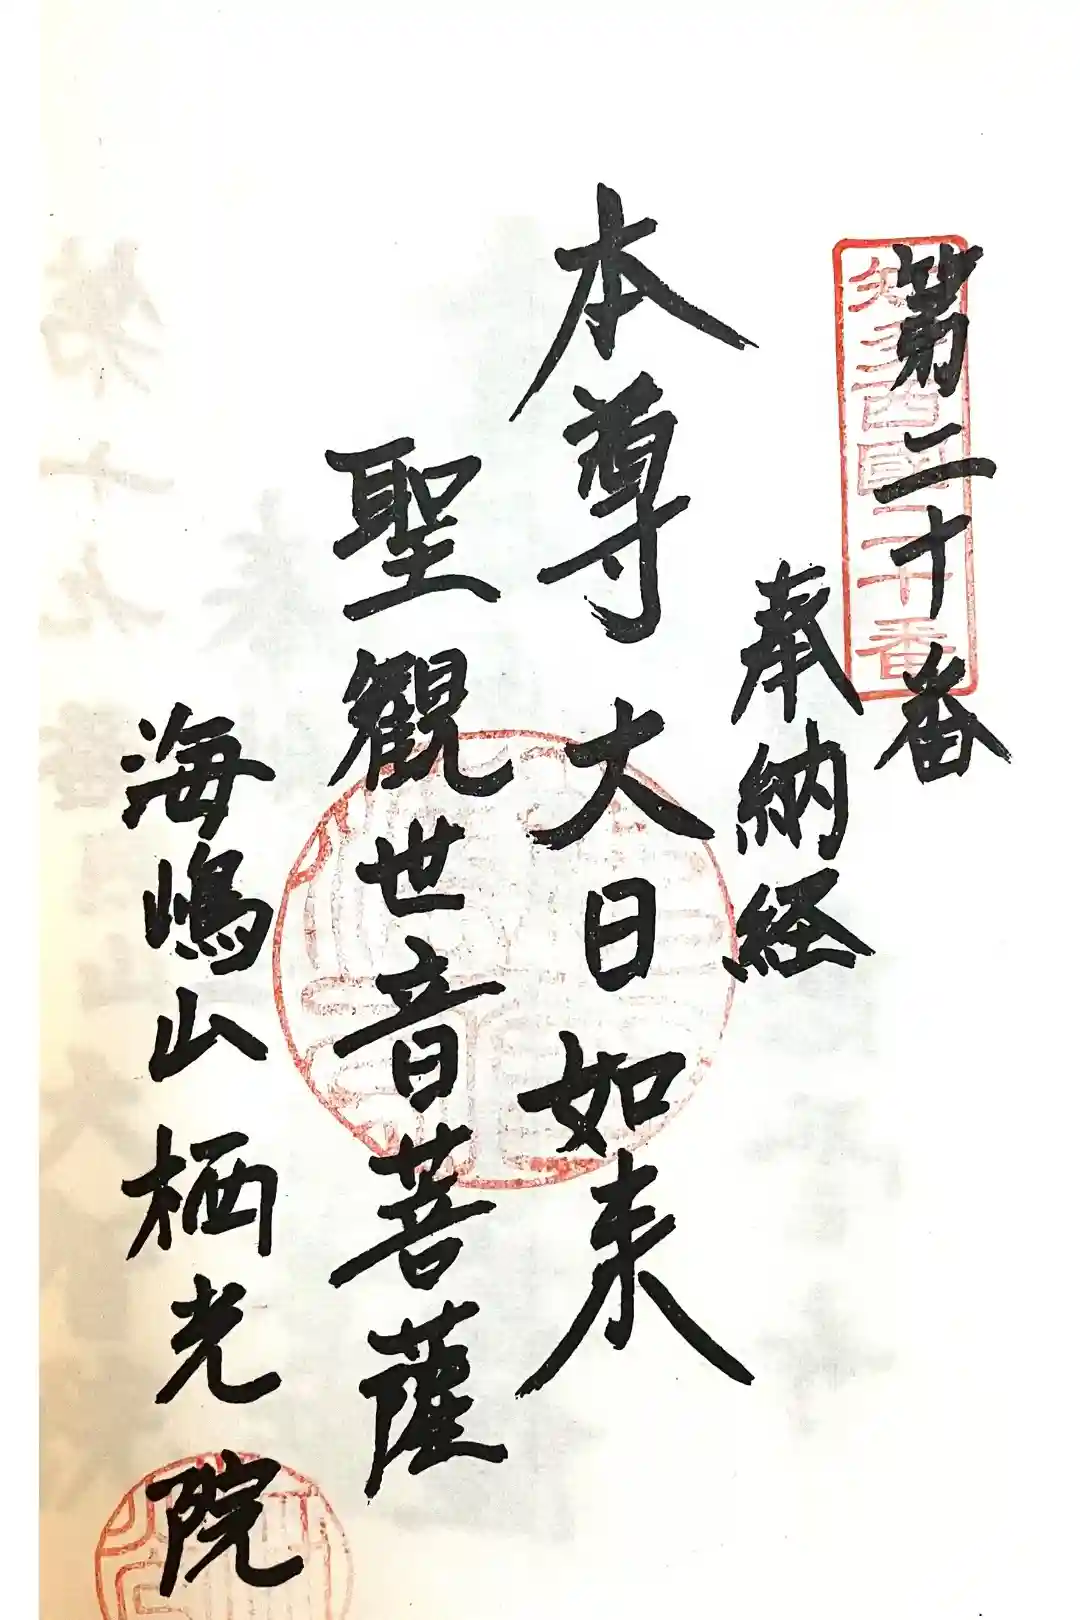 第二十番
知多西國二十番
奉納経
本尊大日如来
聖觀世音菩薩
海嶋山栖光院